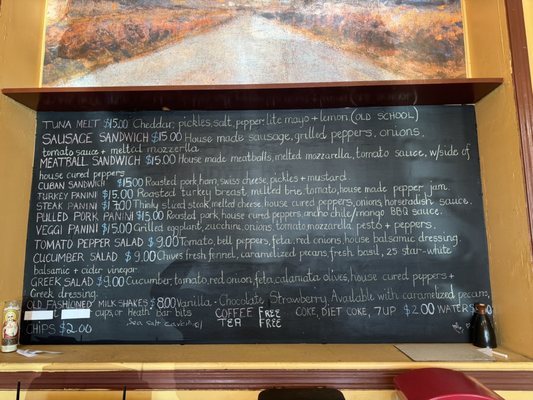 TUNA MELT $15.00 Cheddar, pickles, salt, pepper, lite mayo + lemon (OLD SCHOOL)
SAUSAGE SANDWICH $15.00 House made sausage, grilled peppers, onions,
tomato sauce + melted mozzerella
MEATBALL SANDWICH $15.00 House made meatballs, melted mozzarella, tomato sauce, w/side of
house cured peppers
CUBAN SANDWICH $15.00 Roasted pork, ham, swiss cheese, pickles + mustard
TURKEY PANINI $15.00 Roasted turkey breast, milled brie, tomato, house made pepper jam.
STEAK PANINI $17.00 Thinly sliced steak, melted cheese, house cured peppers, onions, horseradish sauce.
PULLED PORK PANINI $15.00 Roasted pork, house cured peppers, ancho chile/mango BBQ sauce.
VEGGI PANINI $15.00 Grilled eggplant, zucchini, onions, tomato, mozzarella, pesto + peppers.
TOMATO PEPPER SALAD $9.00 Tomato, bell peppers, feta, red onions, house balsamic dressing.
CUCUMBER SALAD $9.00 Chives, fresh fennel, caramelized pecans, fresh basil, 25 star-white
balsamic + cider vinegar
GREEK SALAD $9.00 Cucumber, tomato, red onion, feta, calamata olives, house cured peppers +
Greek dressing
OLD FASHIONED MILKSHAKES $8.00 Vanilla - Chocolate Strawberry, Available with caramelized pecans,
cups, or Heath bar bits COFFEE FREE COKE, DIET COKE, 7UP $2.00 WATER
Sea salt TEA FREE
CHIPS $2.00